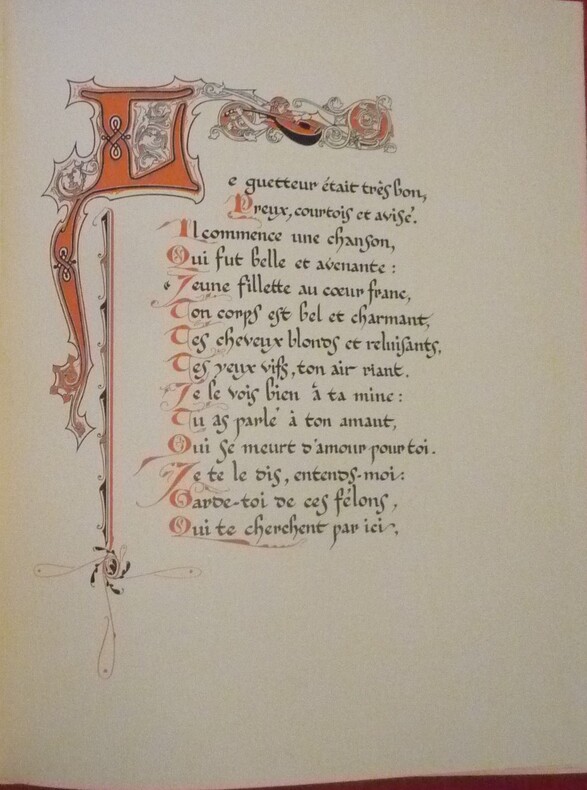 Le guetteur était très bon,
Preux, courtois et avisé.
Il commence une chanson,
Qui fut belle et avenante :
"Jeune fillette au cœur franc,
Ton corps est bel et charmant,
Tes cheveux blonds et reluisants,
Tes yeux vifs, ton air riant.
Je le vois bien à ta mine :
Tu as parlé à ton amant,
Qui se meurt d'amour pour toi.
Je te le dis, entends-moi :
Garde-toi de ces félons,
Qui te cherchent par ici,